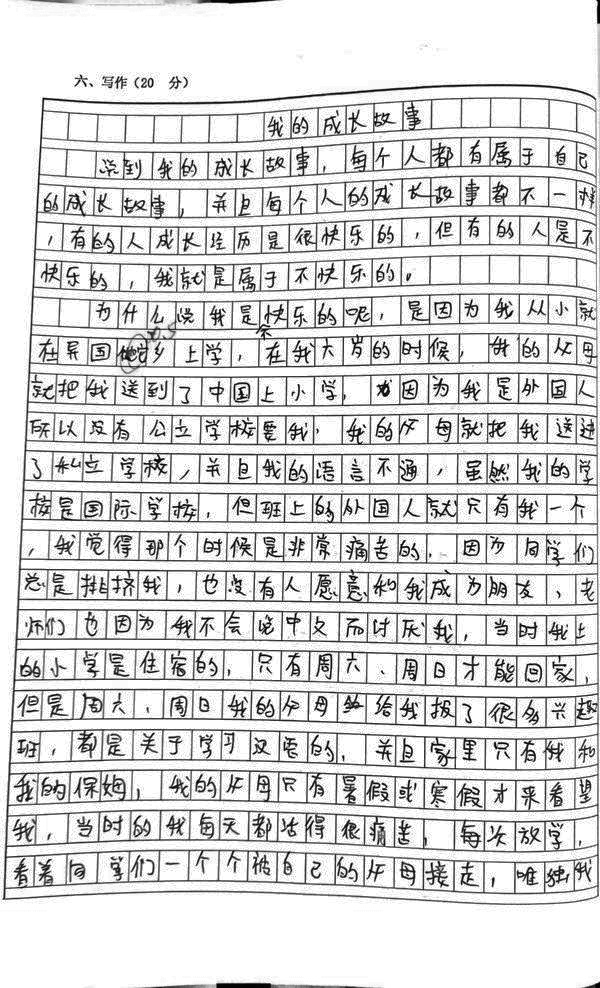 六、写作(20 分)
我的成长故事
说到我的成长故事，每个人都有属于自己
的成长故事，并且每个人的成长故事都不一样
，有的人成长经历是很快乐的，但有的人是不
快乐的，我就是属于不快乐的。
为什么说我是不快乐的呢，是因为我从小就
在异国他乡上学，在我六岁的时候，我的父母
就把我送到了中国上小学，因为我是外国人
所以没有公立学校要我，我的父母就把我送进
了私立学校，并且我的语言不通，虽然我的学
校是国际学校，但班上的外国人就只有我一个
，我觉得那个时候是非常痛苦的，因为同学们
总是排挤我，也没有人愿意和我成为朋友，老
师们也因为我不会说中文而讨厌我，当时我上
的小学是住宿的，只有周六、周日才能回家，
但是周六、周日我的父母给我报了很多兴趣
班，都是关于学习汉语的，并且家里只有我和
我的保姆，我的父母只有暑假或寒假才来看望
我，当时的我每天都活得很痛苦，每次放学，
看着同学们一个个被自己的父母接走，唯独我